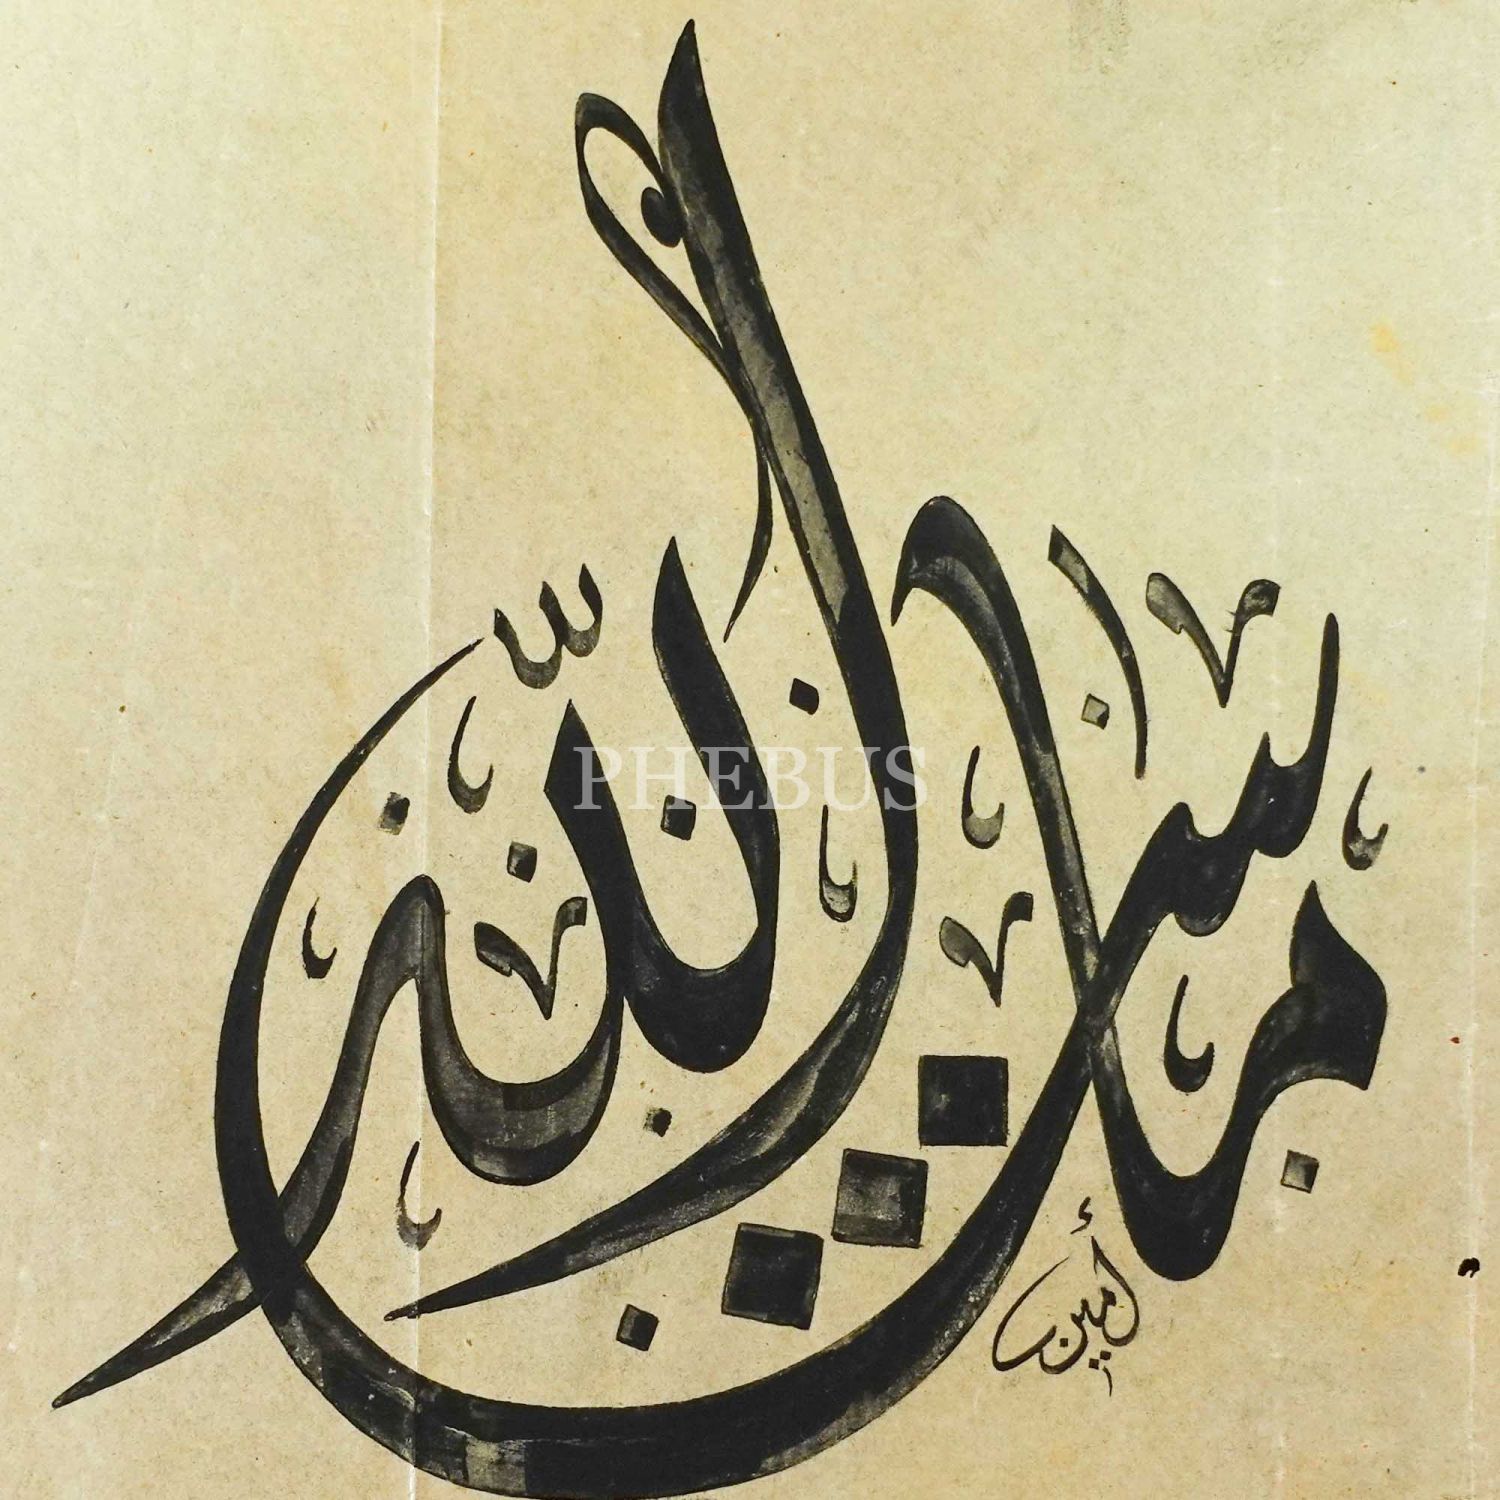 ما شاء الله
أمين
PHEBUS